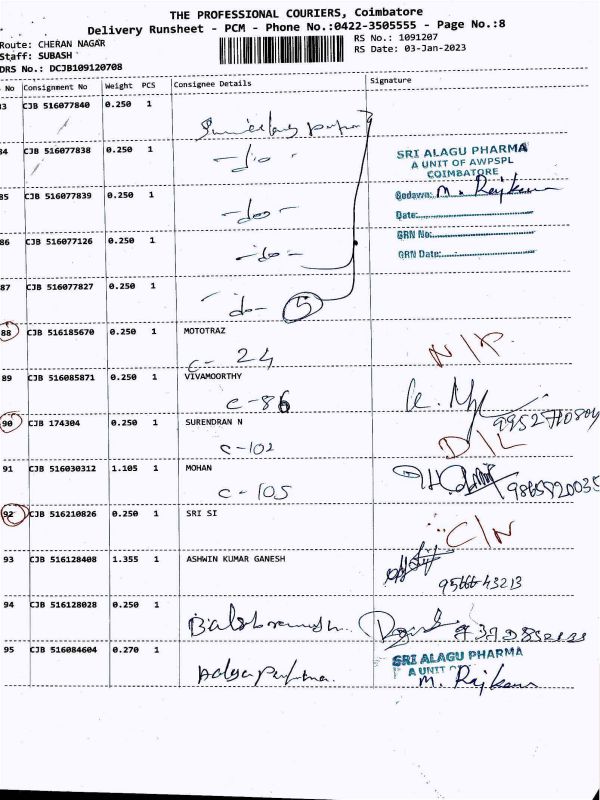 THE PROFESSIONAL COURIERS, Coimbatore
Delivery Runsheet - PCM - Phone No.:0422-3505555 - Page No.:8
Route: CHERAN NAGAR
RS No.: 1091207
Staff: SUBASH
RS Date: 03-Jan-2023
DRS No.: DCJB109120708
No Consignment No Weight PCS Consignee Details Signature
CJB 516077840 0.250 1
84 CJB 516077838 0.250 1 -do-
SRI ALAGU PHARMA
A UNIT OF AWPSPL
COIMBATORE
85 CJB 516077839 0.250 1 -do-
Godawn: M. Rajkumar
Date:
86 CJB 516077126 0.250 1 -do-
GRN No:
GRN Date:
87 CJB 516077827 0.250 1 -do- 5
88 CJB 516185670 0.250 1 MOTOTRAZ
C-24 N/P.
89 CJB 516085871 0.250 1 VIVAMOORTHY
C-86
90 CJB 174304 0.250 1 SURENDRAN N
C-102 D/L
91 CJB 516030312 1.105 1 MOHAN
C-105
92 CJB 516210826 0.250 1 SRI SI
C/N
93 CJB 516128408 1.355 1 ASHWIN KUMAR GANESH
9566643213
94 CJB 516128028 0.250 1
95 CJB 516084604 0.270 1
SRI ALAGU PHARMA
A UNIT
M. Rajkumar